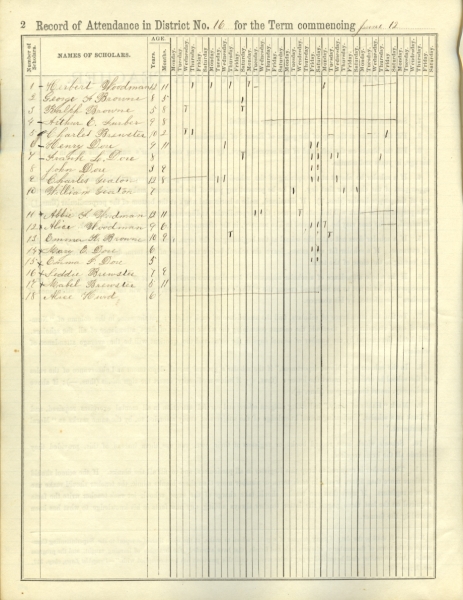 2 Record of Attendance in District No. 16 for the Term commencing June 12
Number of Scholars.
NAMES OF SCHOLARS.
AGE.
Years. Months.
Monday. Tuesday. Wednesday. Thursday. Friday. Saturday. Monday. Tuesday. Wednesday. Thursday. Friday. Saturday. Monday. Tuesday. Wednesday. Thursday. Friday. Saturday. Monday. Tuesday. Wednesday. Thursday. Friday. Saturday. Monday. Tuesday. Wednesday. Thursday. Friday. Saturday. Monday. Tuesday. Wednesday. Thursday. Friday. Saturday. Monday. Tuesday. Wednesday. Thursday. Friday. Saturday.
1 Herbert Woodman 13 11
2 George A Browne 8 5
3 Ralph Browne 5 8
4 Arthur E. 9 8
5 Charles Brewster 10 2
6 Henry Dow 9 11
7 Frank L. Dow 8
8 John Dow 3 9
9 Charles Seaton 13 8
10 William Seaton 7
11 Abbie S. Woodman 13 11
12 Alice Woodman 9 6
13 Emma H. Browne 10 9
14 Mary E. Dow 6
15 Emma F. Dow 5
16 Brewster 7 9
17 Mabel Brewster 6 11
18 Alice Hend 6